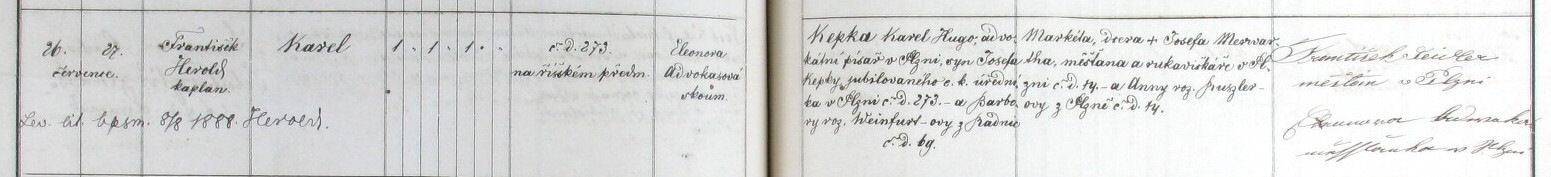 26. 27. František Karel 1. 1. 1. č. d. 273. Eleonora
července. Herold na říšském předm. Advokasová
kaplan. zkouš.
Lev. lit. bpsm. 8/8 1888. Herold.
Kepka Karel Hugo, advo-
kátní písař v Plzni, syn Josefa
Kepky, jubilovaného c. k. úřední-
ka v Plzni č. d. 273. – a Barbo-
ry roz. Weinfurt-ovy z Radnic
č. d. 69.
Markéta, dcera + Josefa
tha, měšťana a rukavičkáře v Pl-
zni č. d. 14. – a Anny roz.
ovy z Plzně č. d. 14.
František
měšťan v Plzni
v Plzni